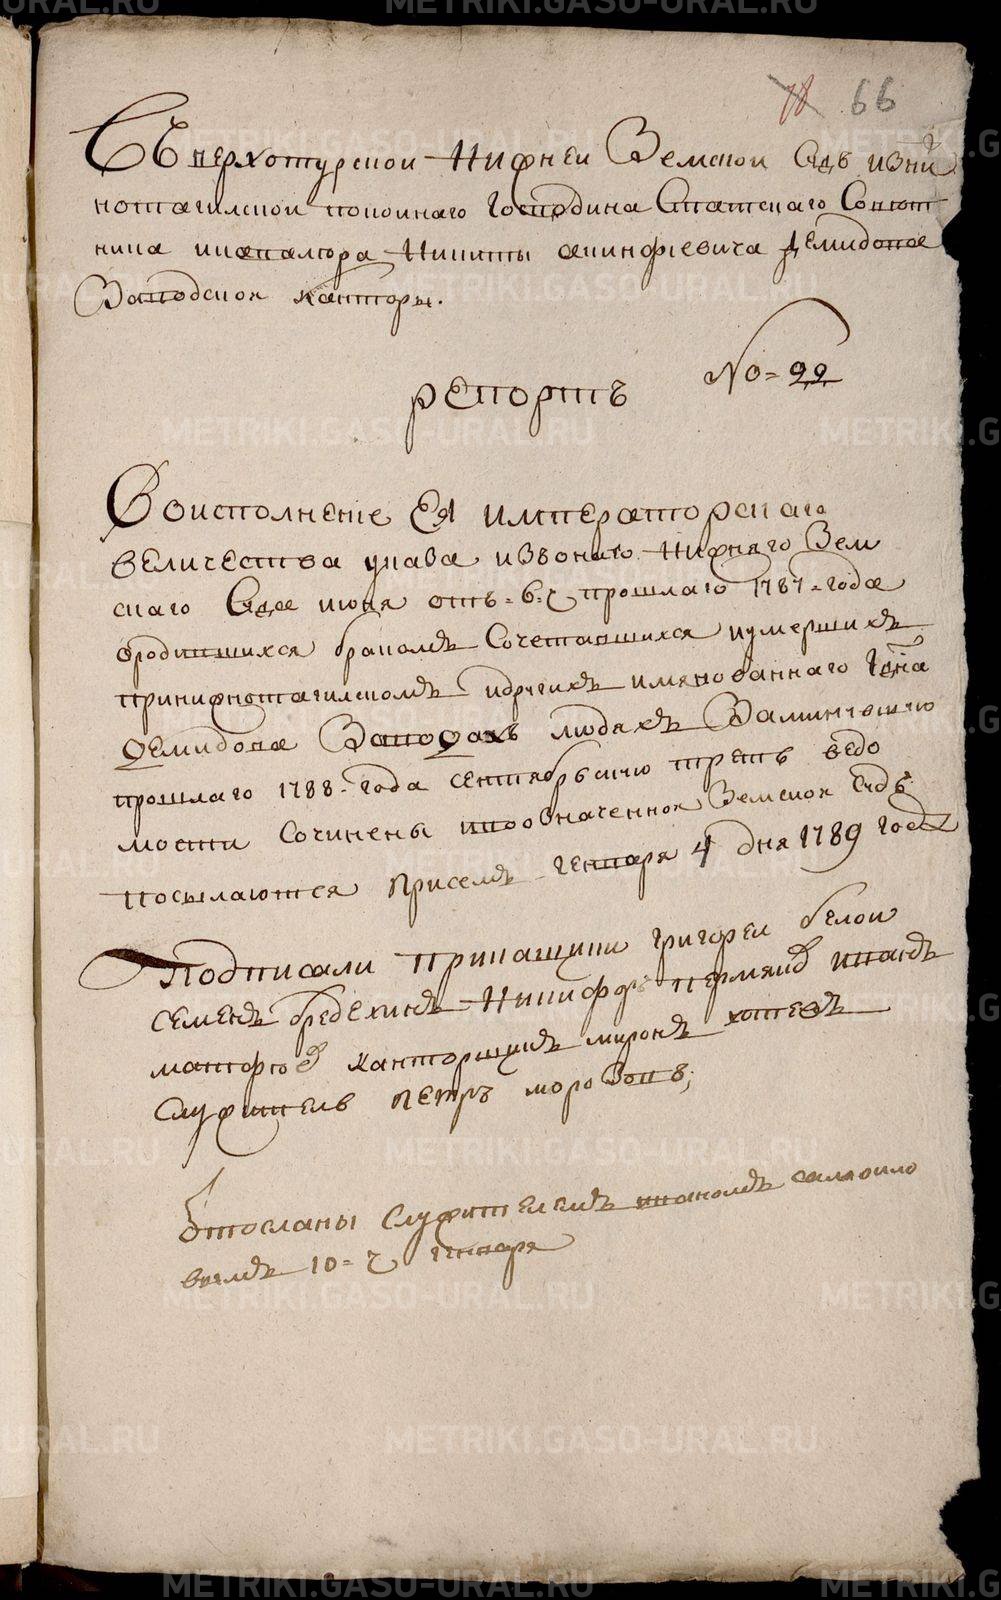 78 66
Въ верхотурской Нижней Земской Судъ изни
нотагилской покоинаго Господина Статскаго Совѣт
ника икавалера Никиты акинфиевича Демидова
Заводской канторы.
репортъ No= 99
Воисполнение Ея императорскаго
величества указа изъонаго Нижняго Зем
скаго Суда июня отъ=6=ч прошлаго 1787=года
ородившихся бракомъ Сочетавшихся иумершихъ
принижнотагилскомъ идругихъ имянованнаго Гдна
Демидова Заводахъ людяхъ Заминувшую
прошлаго 1788=года сентябрьскую треть ведо
мости Сочинены ивоозначенной Земской Судъ
посылаются присемъ генваря 4 дня 1789 года
Подписали прикащики григореи белои
семенъ бредихинъ Никифоръ пермяков иванъ
маторгов канторщикъ миронъ
Служитель петръ морозовъ;
Отосланы Служителемъ иваномъ самоило
вымъ 10=ч генваря
METRIKI.GASO-URAL.RU